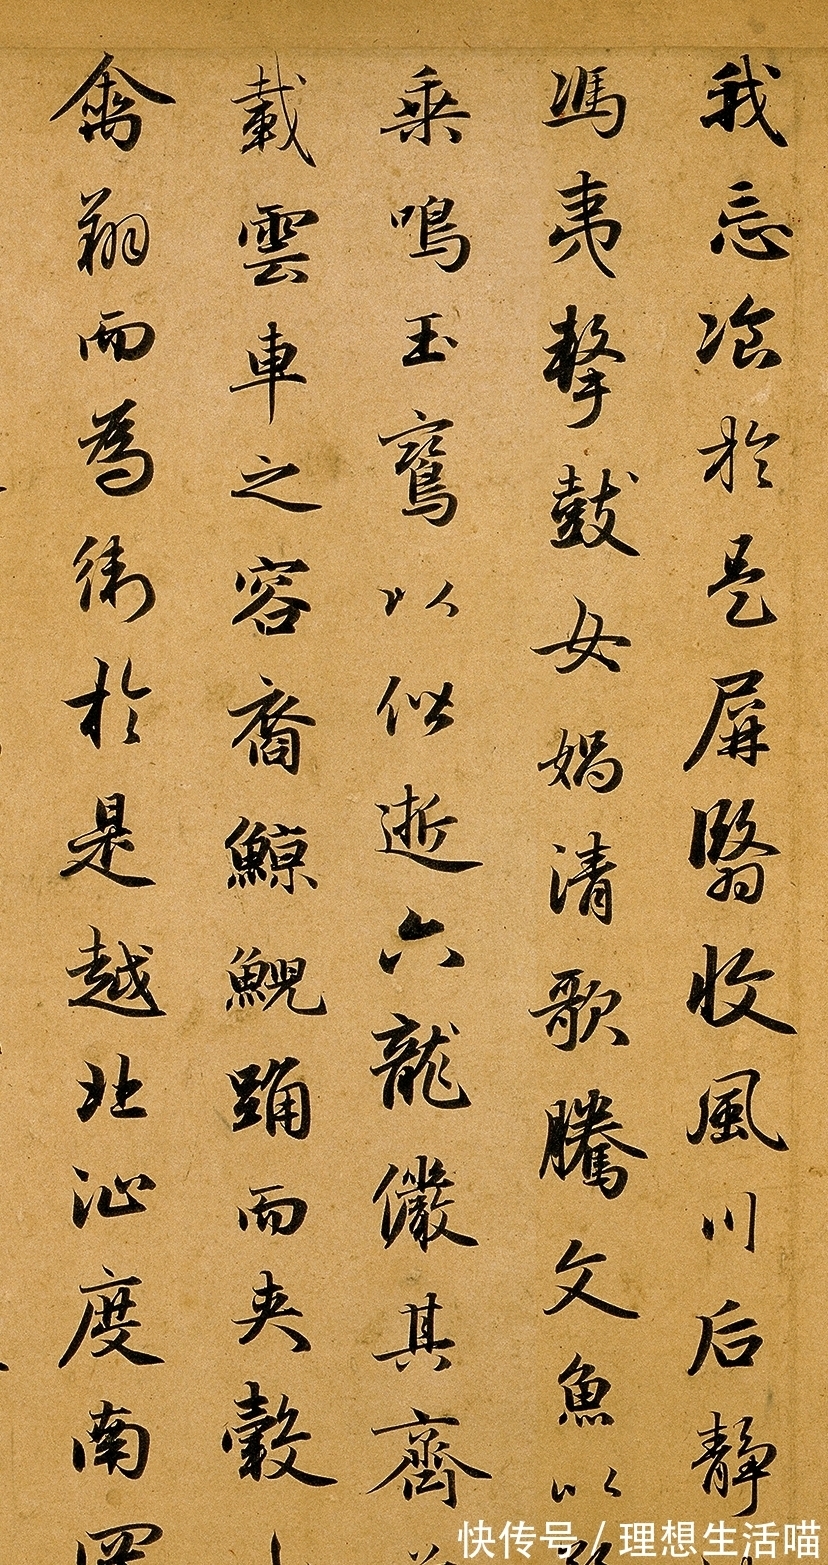 我忘飡於是屏翳收風川后静
馮夷擊鼓女媧清歌騰文魚以
乘鳴玉鸞以偕逝六龍儼其齊
載雲車之容裔鯨鯢踊而夾轂
禽翔而為衛於是越北沚度南
快传号 / 理想生活喵